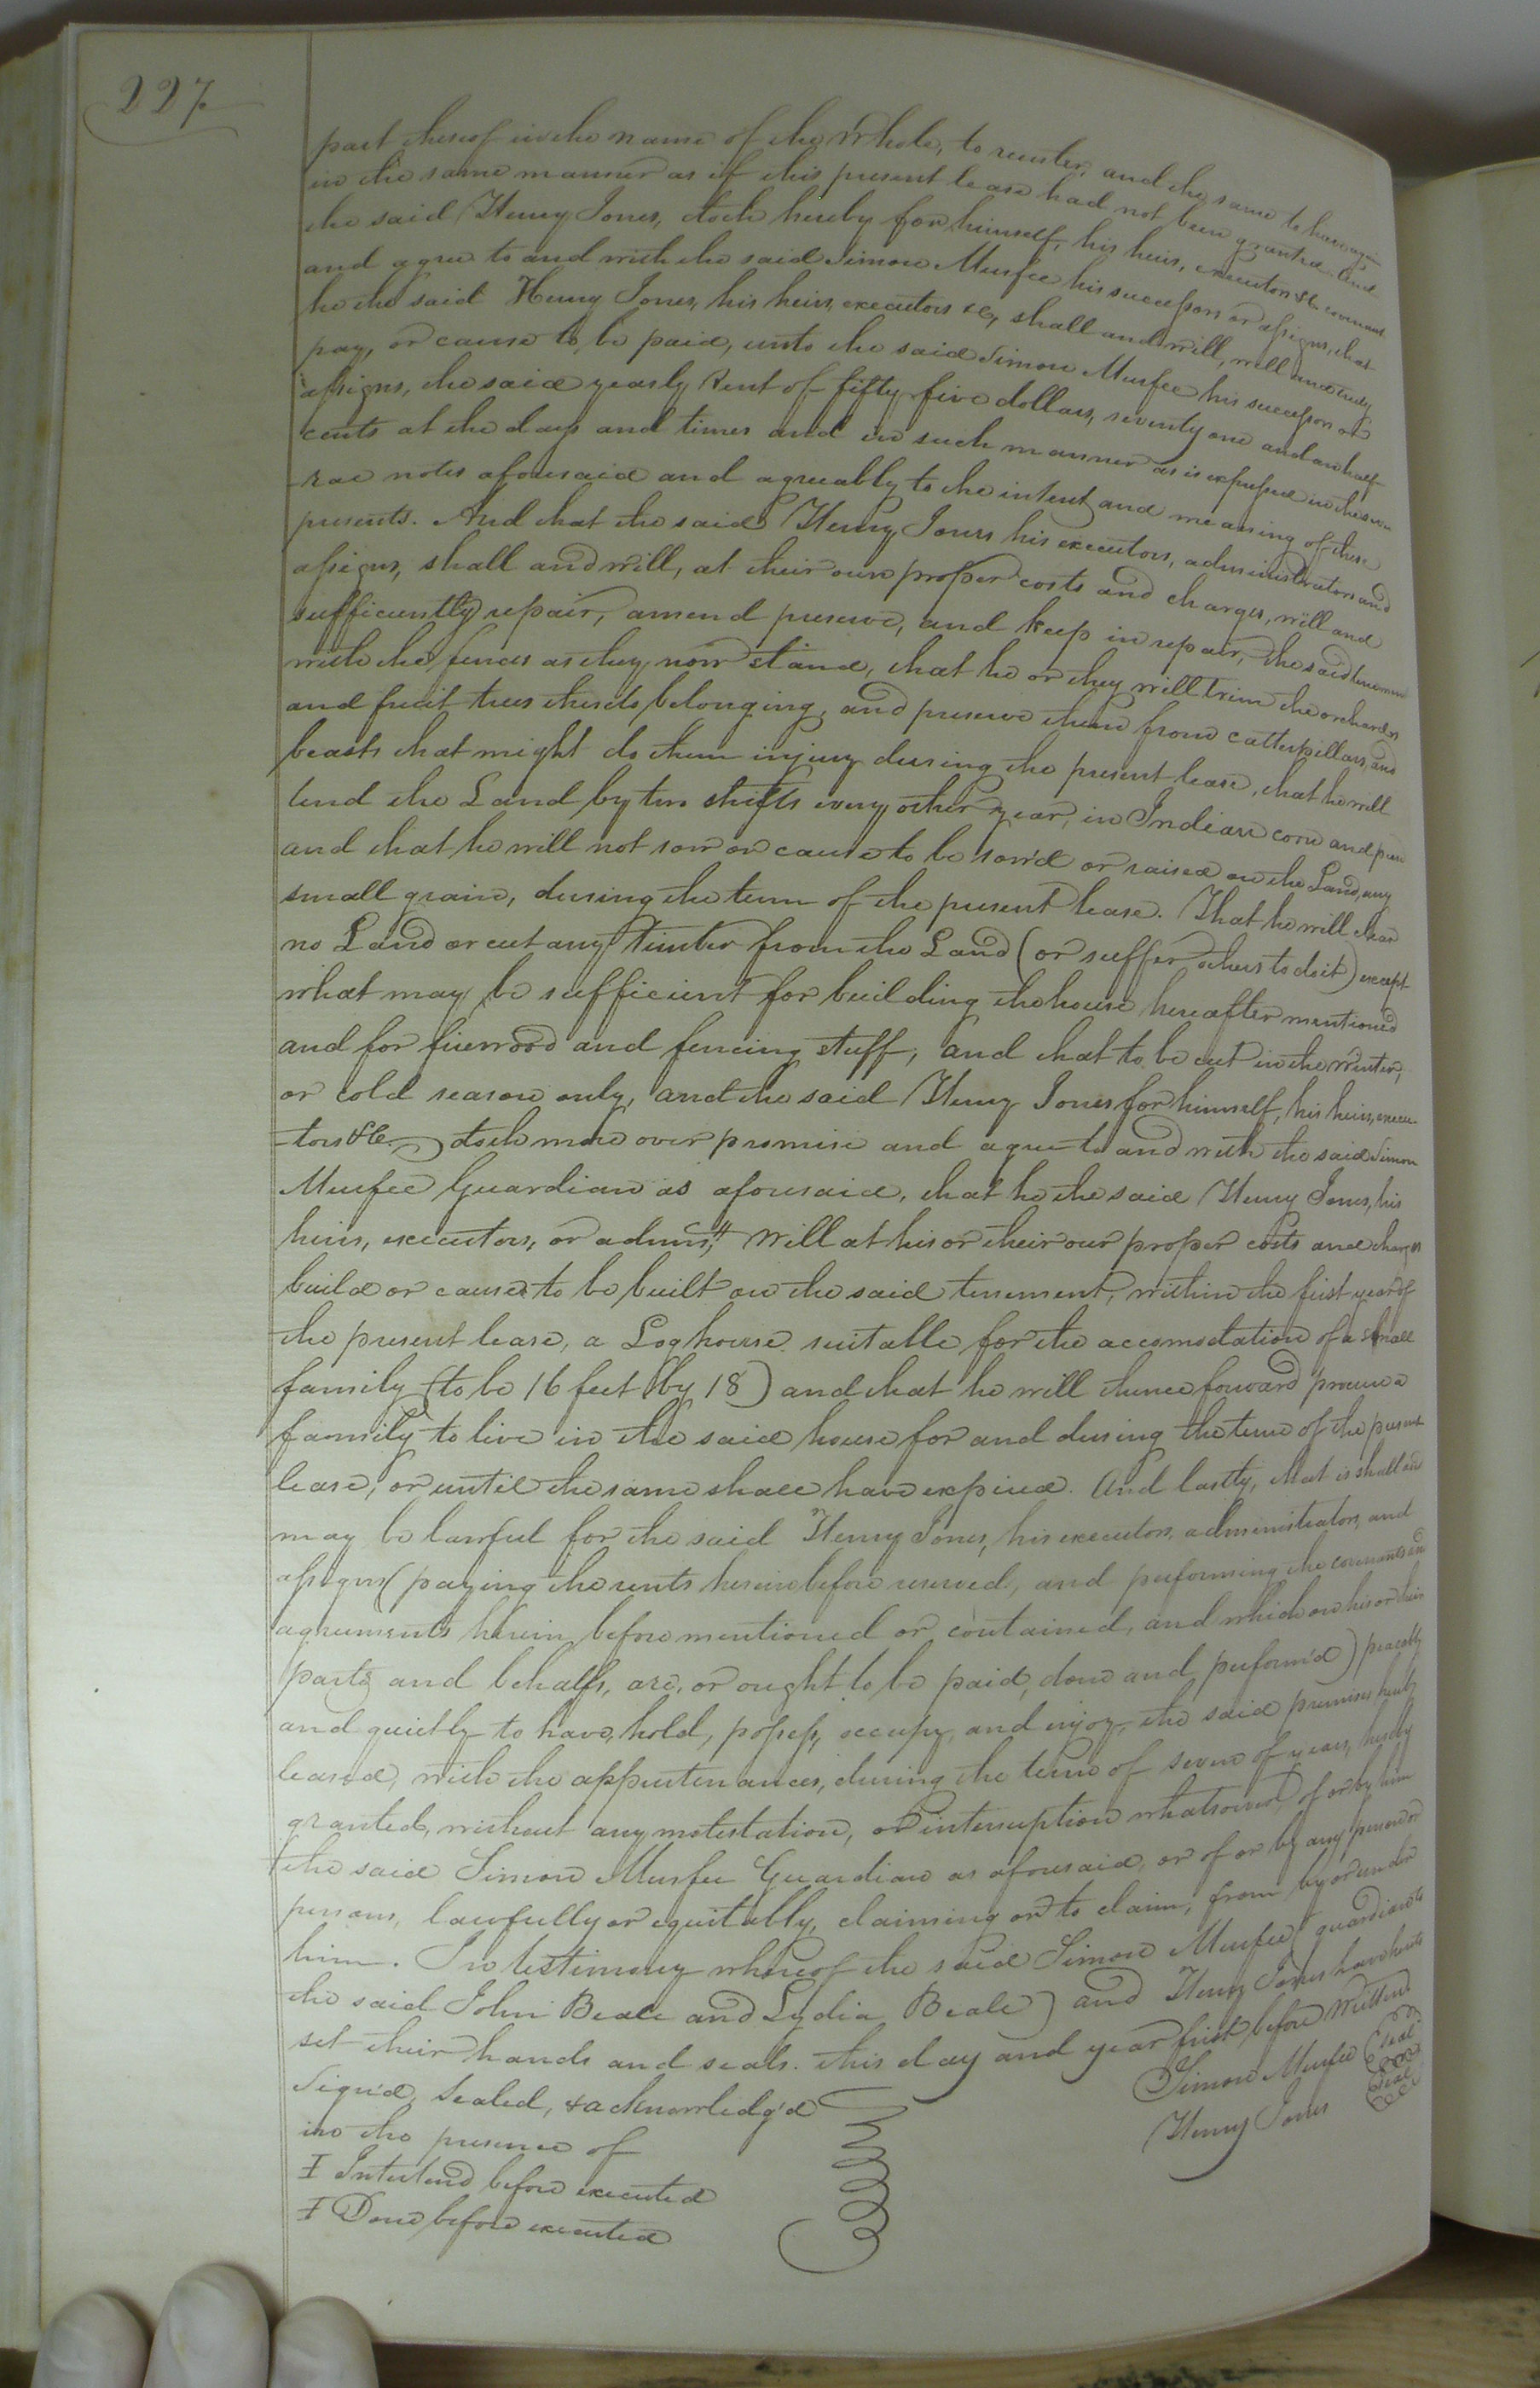 227
part thereof in the name of the Whole, to reenter, and the same to have again
in the same manner as if this present lease had not been granted. And
the said Henry Jones, doth hereby for himself, his heirs, executors &c covenant
and agree to and with the said Simon Murfee his successors or assigns, that
he the said Henry Jones, his heirs, executors &c, shall and will, well and truly
pay, or cause to be paid, unto the said Simon Murfee his successors or
assigns, the said yearly Rent of fifty five dollars, seventy one and an half
cents at the days and times and in such manner as is expressed in the seve
-ral notes aforesaid and agreeably to the intent and meaning of these
presents. And that the said Henry Jones his executors, administrators and
assigns, shall and will, at their own proper costs and charges, well and
sufficiently repair, amend preserve, and keep in repair, the said tenement
with the fences as they now stand, that he or they will trim the orchards
and fruit trees thereto belonging, and preserve them from catterpillars, and
beasts that might do them injury during the present lease, that he will
tend the Land by two shifts every other year, in Indian corn and peas
and that he will not sow or cause to be sow'd or raised on the Land, any
small grain, during the term of the present lease. That he will clear
no Land or cut any timber from the Land (or suffer others to do it) except
what may be sufficient for building the house hereafter mentioned
and for firewood and fencing stuff, and that to be cut in the Winter,
or Cold season only, and the said Henry Jones for himself, his heirs, execu-
-tors &c doth more over promise and agree to and with the said Simon
Murfee Guardian as aforesaid, that he the said Henry Jones, his
heirs, executors, or admrs, will at his or their our proper costs and charges
build or causes to be built on the said tenement, within the first year of
the present lease, a Loghouse suitable for the accomodation of a small
family (to be 16 feet by 18) and that he will thence forward procure a
family to live in the said house for and during the term of the present
lease, or until the same shall have expired. And lastly, that is shall and
may be lawful for the said Henry Jones, his executors, administrators, and
assigns (paying the rents herein before reserved, and performing the covenants and
agreements herein before mentioned or contained, and which on his or their
parts and behalfs, are, or ought to be paid, done and perform'd) peaceably
and quietly to have, hold, possess, occupy, and enjoy, the said premises hereby
leased, with the appurtenances, during the term of seven of years, hereby
granted, without any motestation, or interruption whatsoever, of or by him
the said Simon Murfee Guardian as aforesaid, or of or by any person or
persons, lawfully or equitably, claiming or to claim, from by or under
him. In testimony whereof the said Simon Murfee (guardian to
the said John Beale and Lydia Beale) and Henry Jones have hereto
set their hands and seals. this day and year first before written
Sign'd, Sealed, & acknowledg'd
Simon Murfee Seal
in the presence of
Henry Jones Seal
I Interlined before executed
I Done before executed